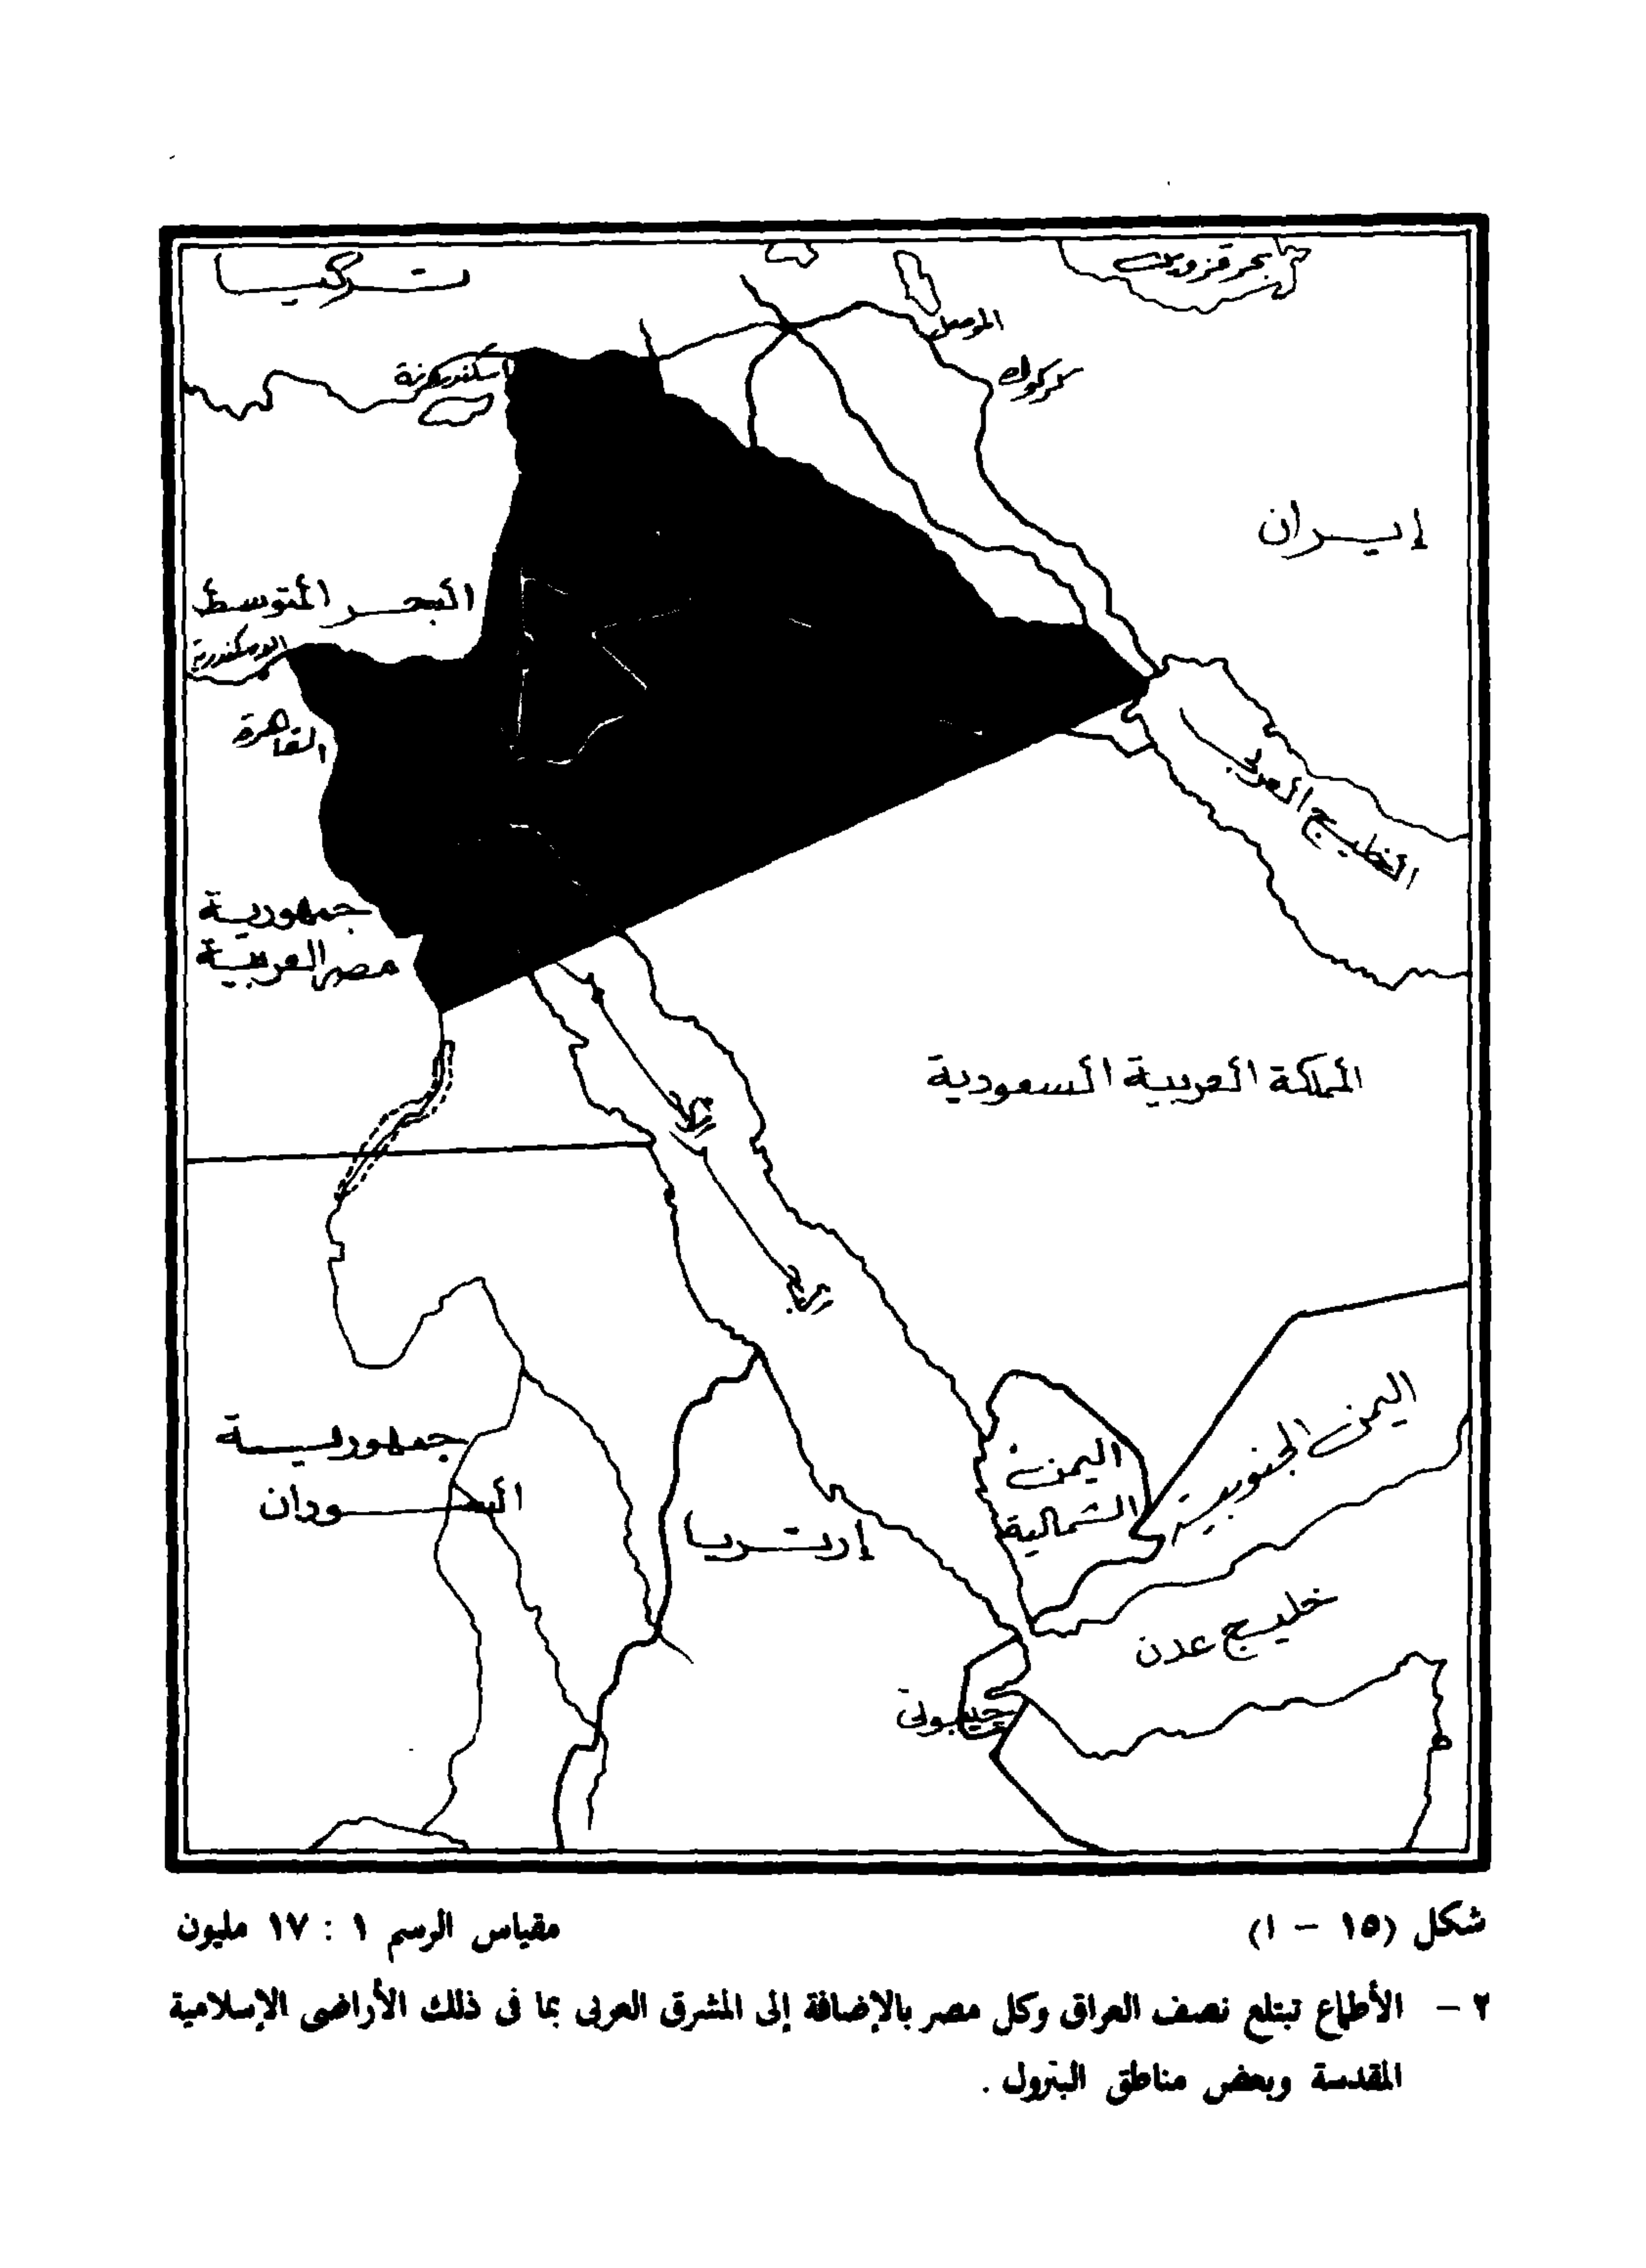 تركيا
بحر قزوين
الموصل
كركوك
اسكندرونة
إيران
البحر المتوسط
القاهرة
الخليج العربى
جمهورية
مصر العربية
المملكة العربية السعودية
جمهورية
السودان
إرتريا
اليمن
الشمالية
اليمن الجنوبية
خليج عدن
جيبوتى
شكل (١٥ – ١)
مقياس الرسم ١ : ١٧ مليون
٢ – الأطماع تبتلع نصف العراق وكل مصر بالإضافة إلى المشرق العربى بما فى ذلك الأراضى الإسلامية
المقدسة وبعض مناطق البترول .